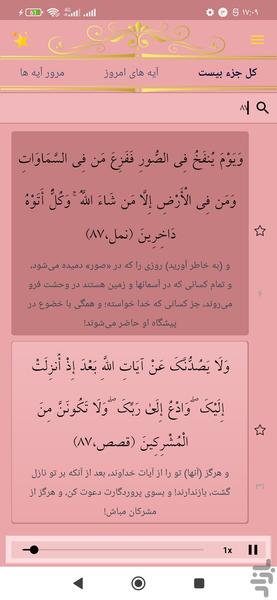 ۱۷:۰۹
کل جزء بیست
آیه های امروز
مرور آیه ها
۸۷
وَيَوْمَ يُنفَخُ فِي الصُّورِ فَفَزِعَ مَن فِي السَّمَاوَاتِ
وَمَن فِي الْأَرْضِ إِلَّا مَن شَاءَ اللَّهُ ۚ وَكُلٌّ أَتَوْهُ
دَاخِرِينَ (نمل،۸۷)
و (به خاطر آورید) روزی را که در «صور» دمیده می‌شود،
و تمام کسانی که در آسمانها و زمین هستند در وحشت فرو
می‌روند، جز کسانی که خدا خواسته؛ و همگی با خضوع در
پیشگاه او حاضر می‌شوند!
وَلَا يَصُدُّنَّكَ عَنْ آيَاتِ اللَّهِ بَعْدَ إِذْ أُنزِلَتْ
إِلَيْكَ ۖ وَادْعُ إِلَىٰ رَبِّكَ ۖ وَلَا تَكُونَنَّ مِنَ
الْمُشْرِكِينَ (قصص،۸۷)
و هرگز (آنها) تو را از آیات خداوند، بعد از آنکه بر تو نازل
گشت، بازندارند! و بسوی پروردگارت دعوت کن، و هرگز از
مشرکان مباش!
1x
بازار